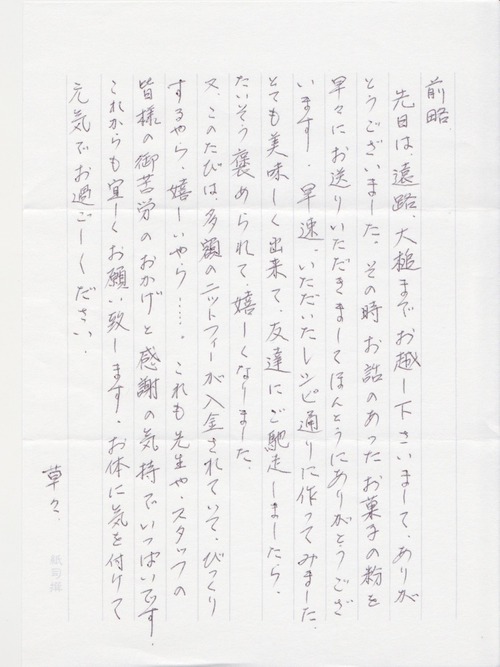 前略
先日は、遠路、大槌までお越し下さいまして、ありが
とうございました。その時お話のあったお菓子の粉を
早々にお送りいただきましてほんとうにありがとうござ
います。早速、いただいたレシピ通りに作ってみました。
とても美味しく出来て、友達にご馳走しましたら、
たいそう褒められて、嬉しくなりました。
又、このたびは、多額のニットフィーが入金されていて、びっくり
するやら、嬉しいやら……。これも先生や、スタッフの
皆様の御苦労のおかげと感謝の気持でいっぱいです。
これからも宜しくお願い致します。お体に気を付けて
元気でお過ごしください。
草々